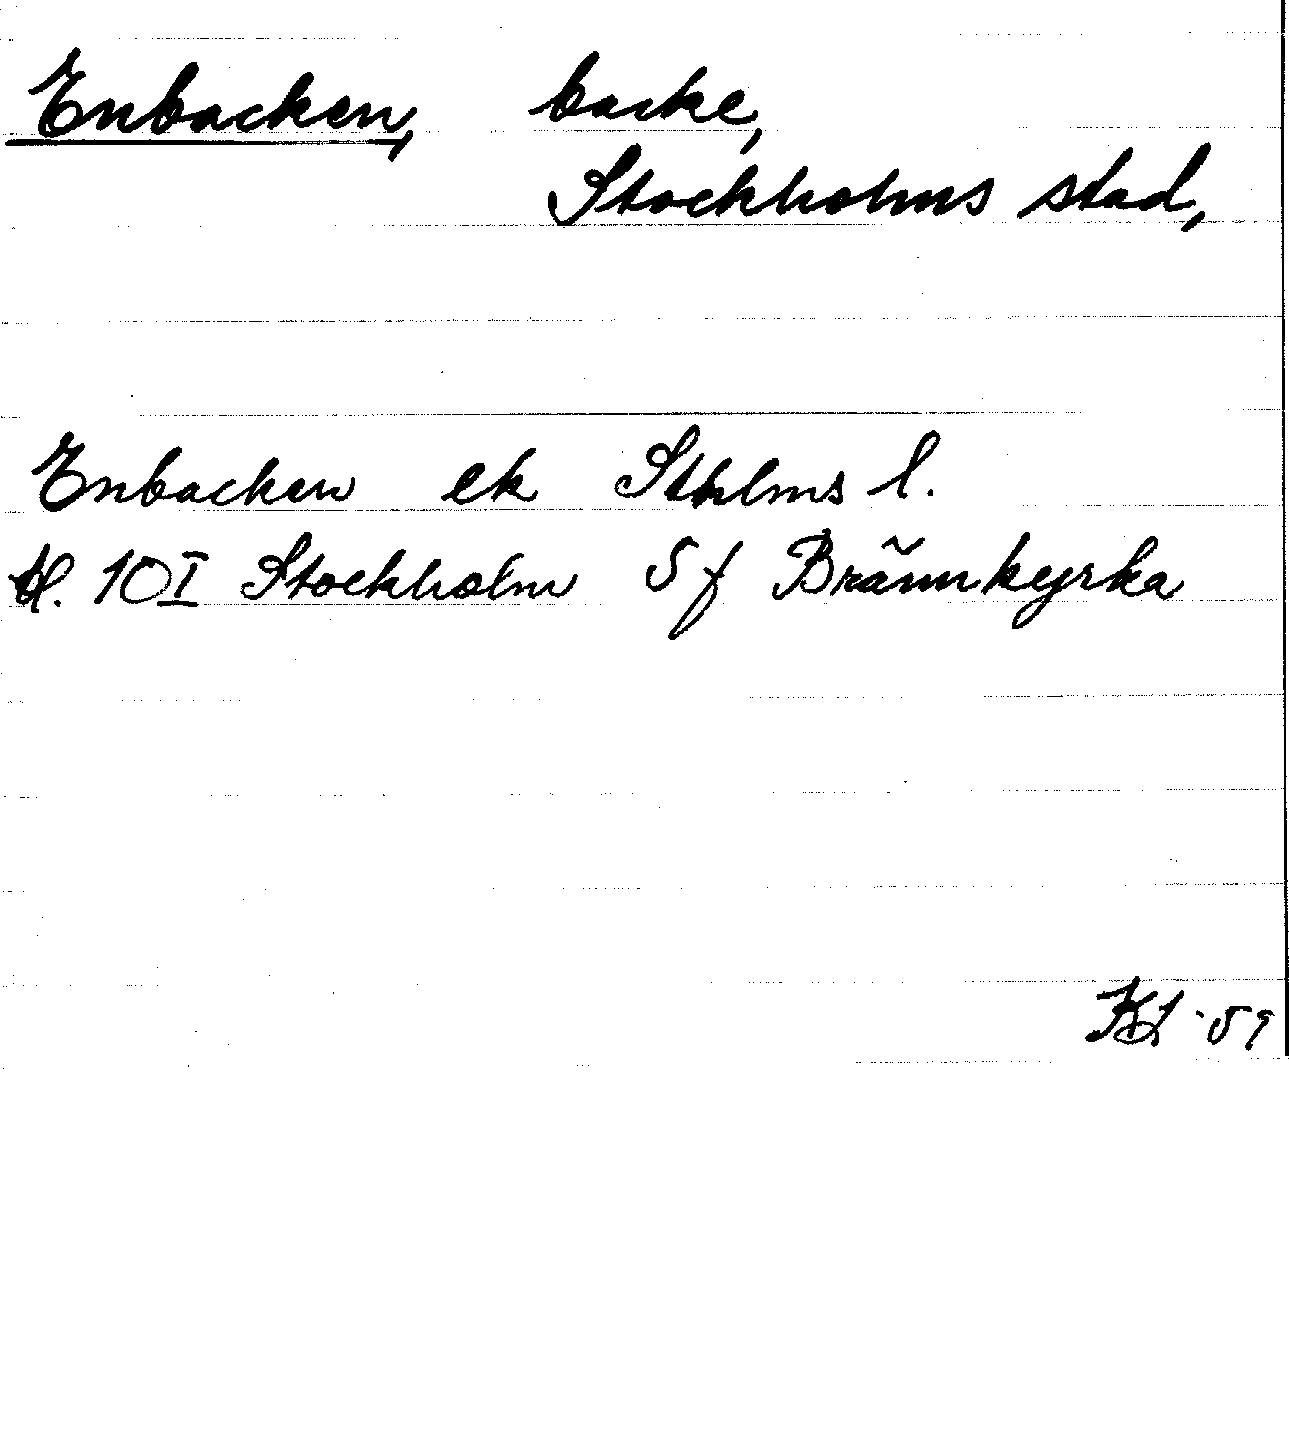 Enbacken, backe,
Stockholms stad,
Enbacken ek Sthlms l.
bl. 10 I Stockholm Sf Brännkyrka
KL -59